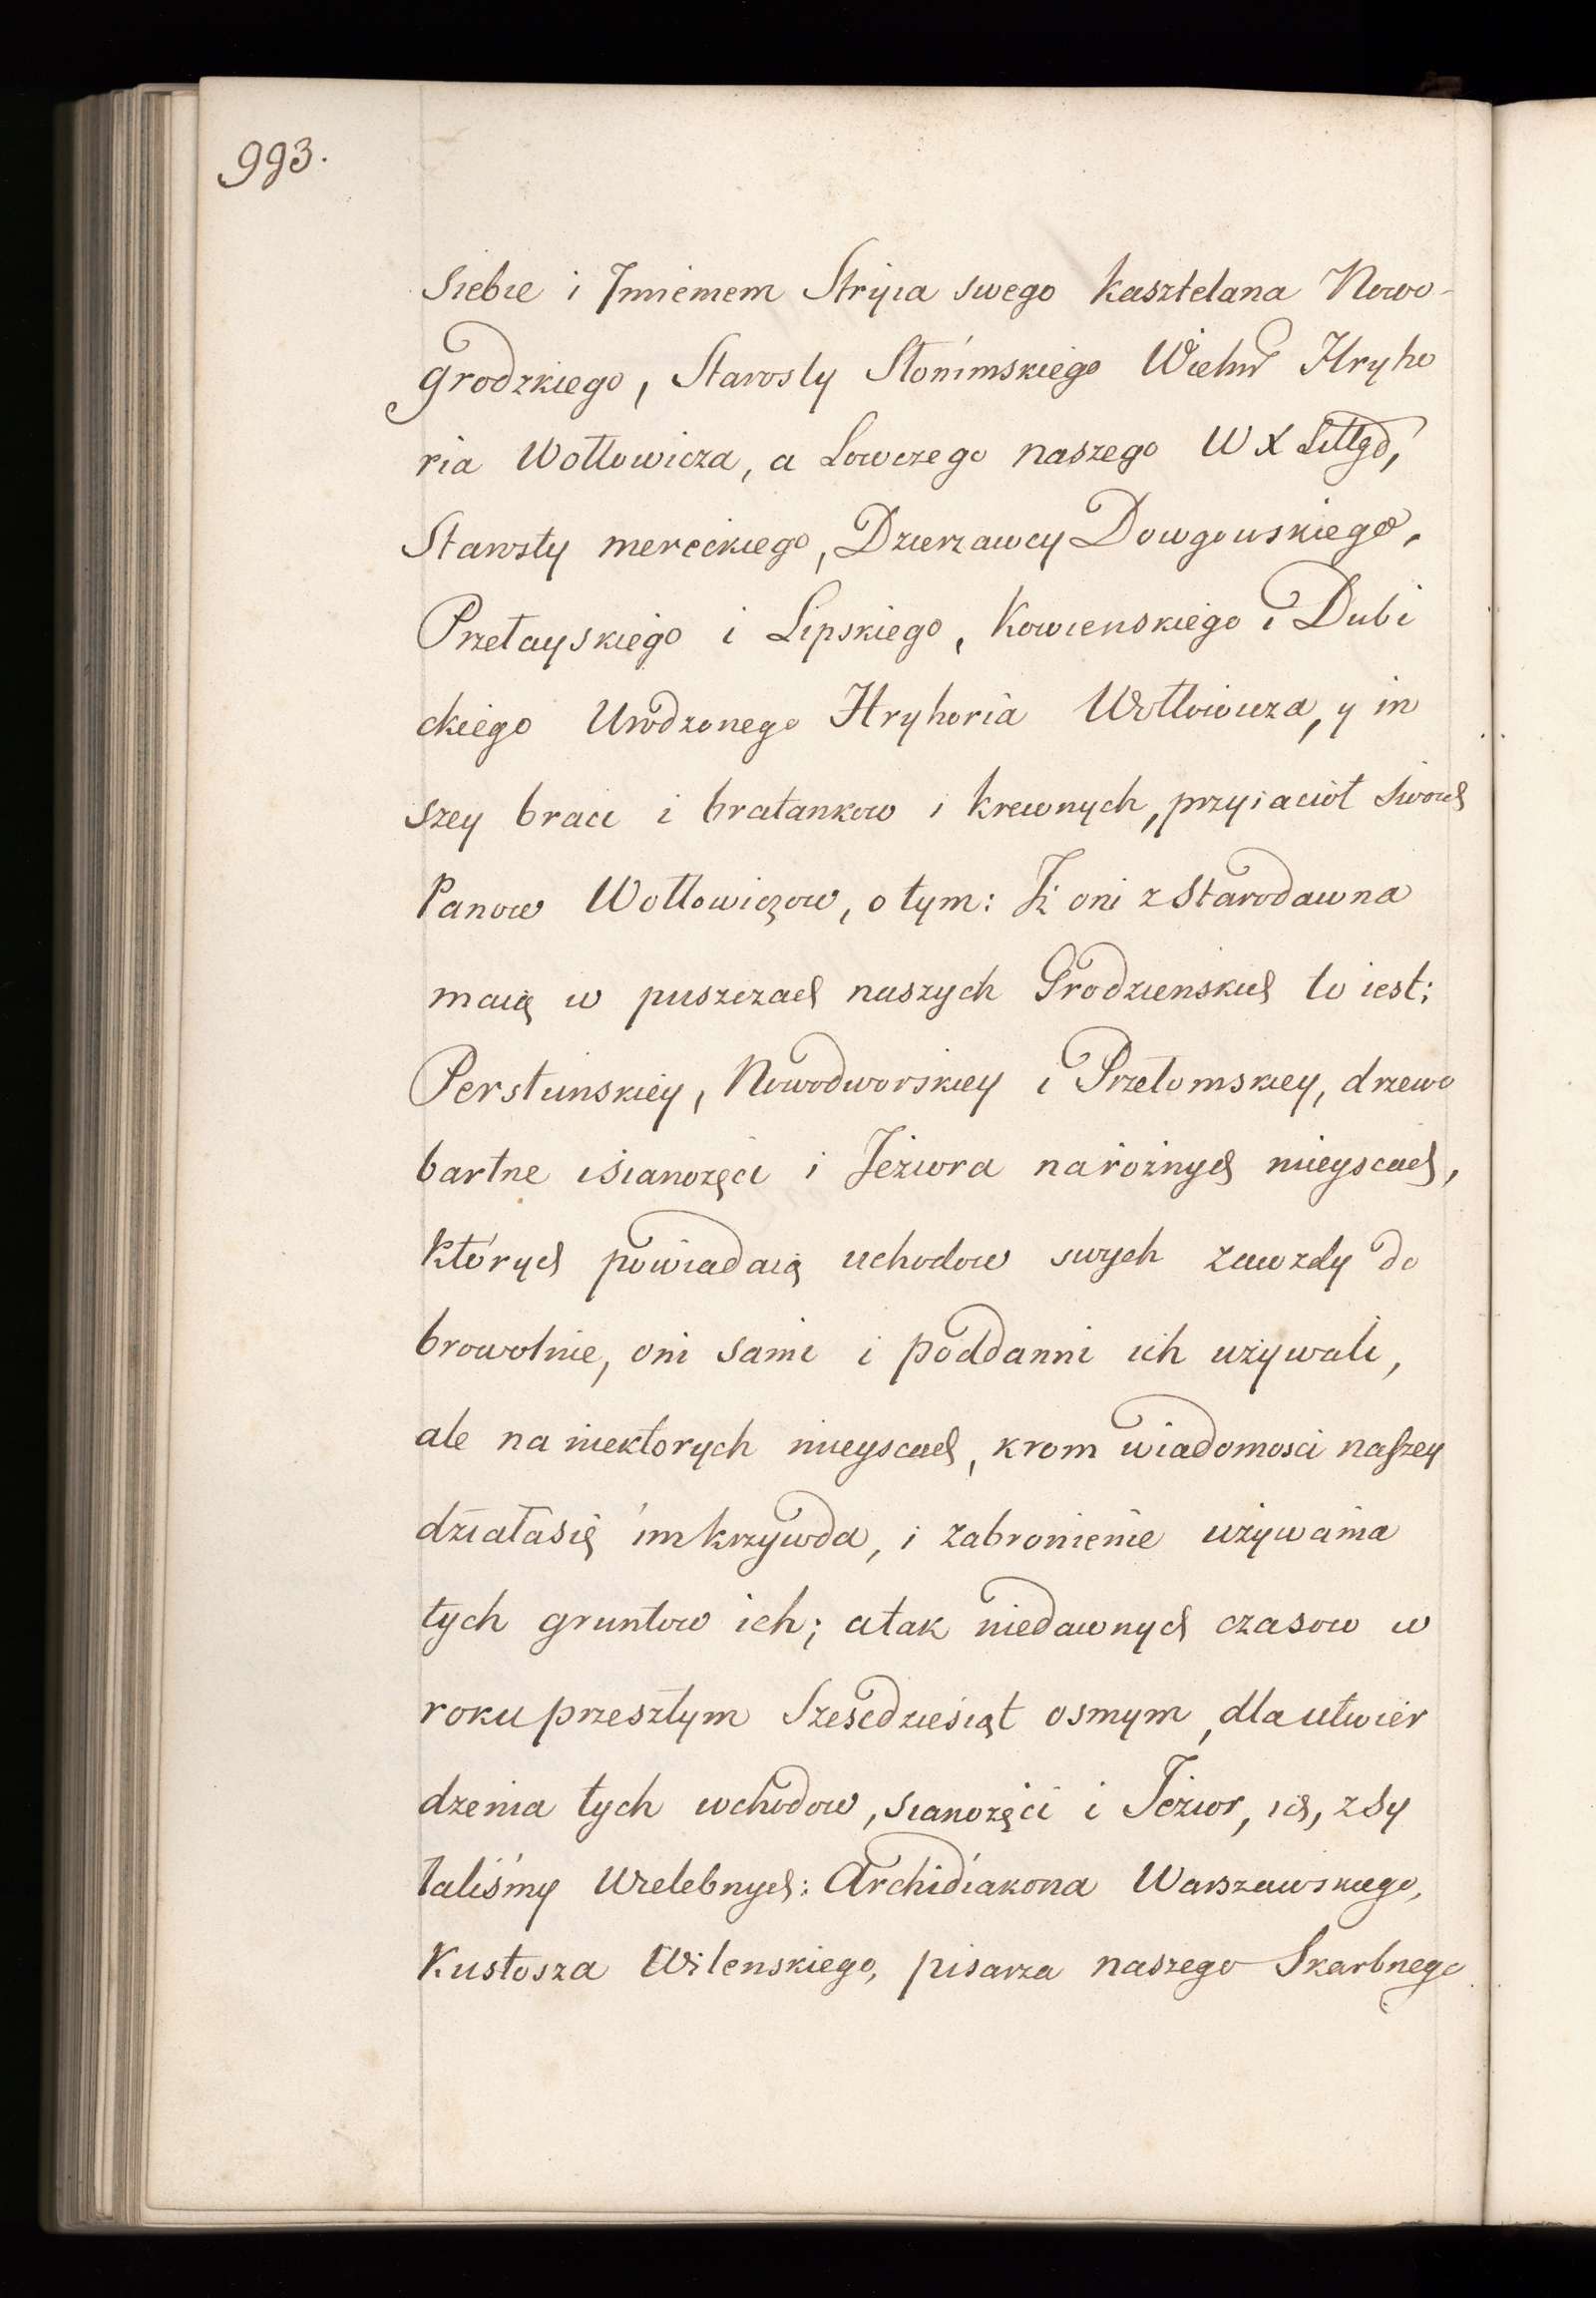 993.
Siebie i Jmieniem Stryia swego kasztelana Nowo-
grodzkiego, Starosty Słonimskiego Hryho
ria Wołłowicza, a Łowczego naszego W X Littgo,
Starosty mereckiego, Dzierzawcy Dowgowskiego,
Przełayskiego i Lipskiego, Kowienskiego i Dubi
ckiego Urodzonego Hryhoria Wołłowicza, y in
szey braci i bratankow i krewnych, przyiacioł swoich
Panow Wołłowiczow, o tym: Jż oni z Starodawna
maią w puszczach naszych Grodzienskich to iest;
Perstunskiey, Nowodworskiey i Przełomskiey, drzewo
bartne i Sianożęci i Jeziora na rożnych mieyscach,
których powiadaią uchodow swych zawzdy do
browolnie, oni sami i poddanni ich używali,
ale na niektorych mieyscach, krom wiadomosci naszey
działasię im krzywda, i zabronienie używania
tych gruntow ich; atak niedawnych czasow w
roku przeszłym Szescdziesiąt osmym, dla utwier
dzenia tych wchodow, sianożęci i Jezior, ich, zsy
łaliśmy Wielebnych: Archidiakona Warszawskiego,
Kustosza Wilenskiego, pisarza naszego Skarbnego